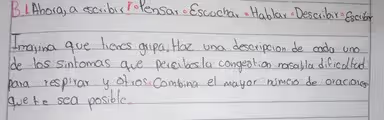 B.1 Ahora, a escribir Pensar Escuchar Hablar Describir Escribir
Imagina que tienes gripa, Haz una descripcion de cada uno
de los sintomas que percibes la congestion nasal la dificultad
para respirar y otros. Combina el mayor número de oraciones
que te sea posible.